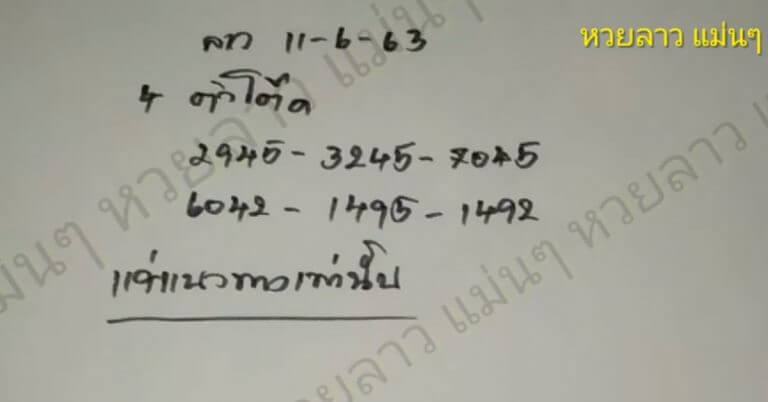 หวยลาว แม่นๆ
ลาว 11-6-63
4 ตัวโต๊ด
2945 - 3245 - 7045
6042 - 1495 - 1492
แค่แนวทางเท่านั้น
แม่นๆ หวยลาว แม่นๆ
แม่นๆ หวยลาว แม่นๆ หวยลาว